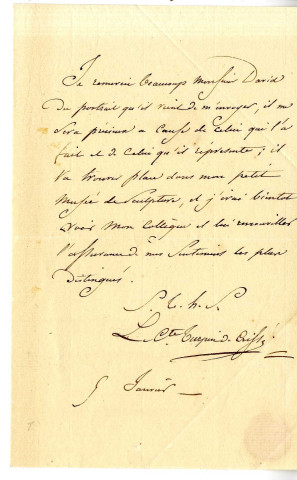 Je remercie beaucoup Monsieur David
du portrait qu'il vient de m'envoyer, il me
sera précieux a cause de celui qui l'a
fait et de celui qu'il représente ; il
va trouver place dans mon petit
musée de sculpture, et j'irai bientot
voir mon collègue et lui renouveller
l'assurance de mes sentimens les plus
distingués.
S. t. h. S.
Le Cte Turpin de Crissé
5 Janvier —